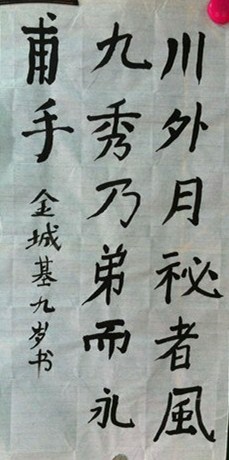 川外月祕者風
九秀乃弟而永
甫手
金城基九岁书